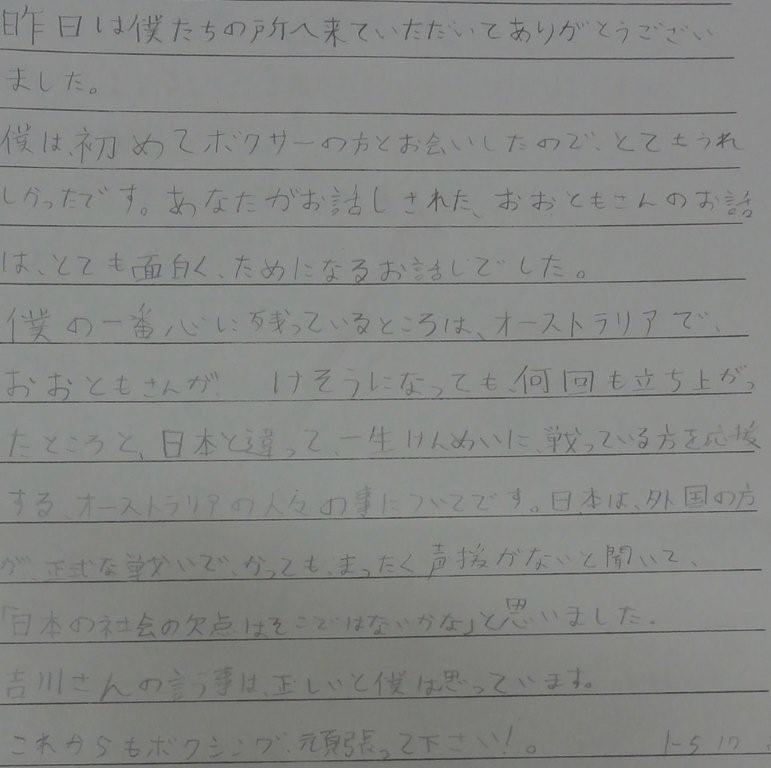 昨日は僕たちの所へ来ていただいてありがとうござい
ました。
僕は、初めてボクサーの方とお会いしたので、とてもうれ
しかったです。あなたがお話しされた、おおともさんのお話
は、とても面白く、ためになるお話しでした。
僕の一番心に残っているところは、オーストラリアで、
おおともさんが けそうになっても、何回も立ち上がっ
たところと、日本と違って、一生けんめいに、戦っている方を応援
する、オーストラリアの人々の事についてです。日本は、外国の方
が、正式な戦いで、かっても、まったく声援がないと聞いて、
「日本の社会の欠点はそこではないかな」と思いました。
吉川さんの言う事は、正しいと僕は思っています。
これからもボクシング、頑張って下さい!。 1-5 17